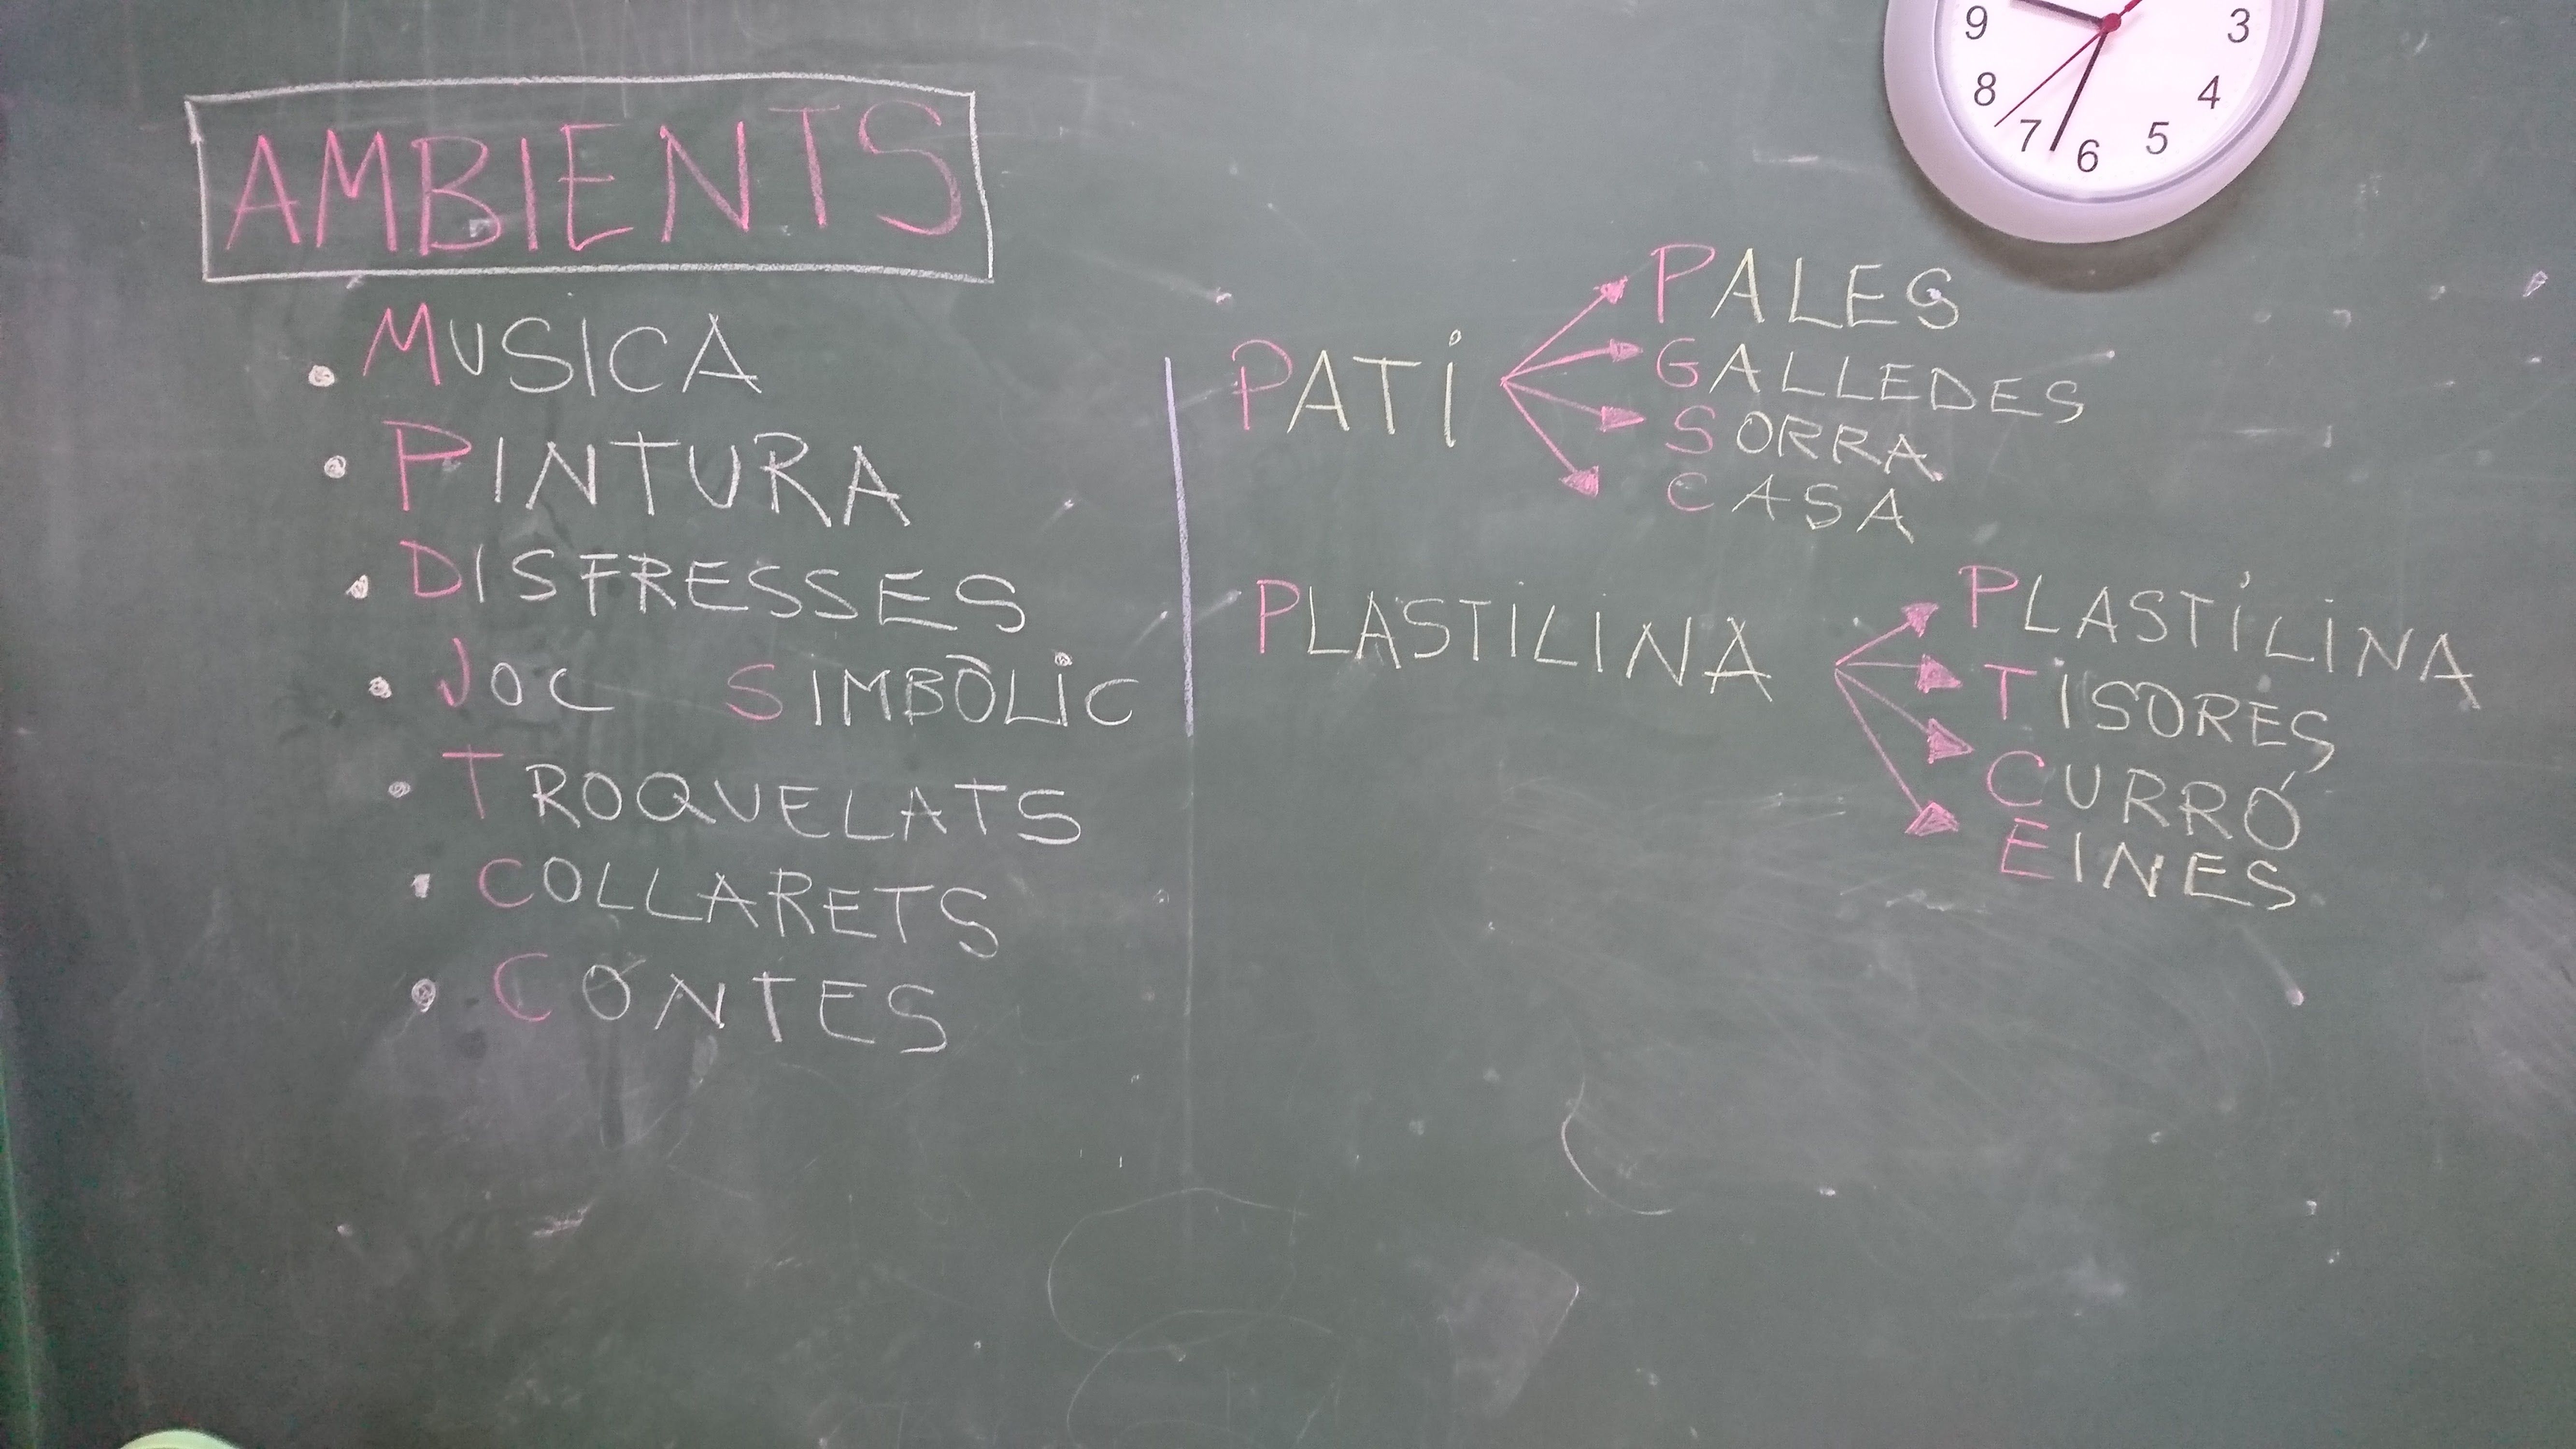 AMBIENTS
• MUSICA
• PINTURA
• DISFRESSES
• JOC SIMBÒLIC
• TROQUELATS
• COLLARETS
• CONTES
PATI
PALES
GALLEDES
SORRA
CASA
PLASTILINA
PLASTILINA
TISORES
CURRÓ
EINES
9
8
7
6
5
4
3